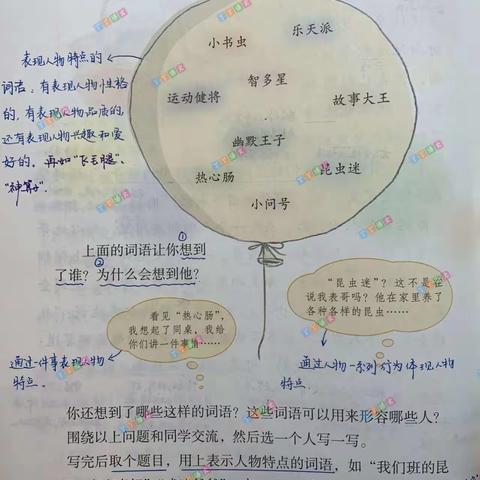 小书虫
乐天派
智多星
运动健将
故事大王
幽默王子
热心肠
昆虫迷
小问号
表现人物特点的
词语，有表现人物性格
的，有表现人物品质的，
还有表现人物兴趣和爱
好的，再如“飞毛腿”、
“神算子”.
①
上面的词语让你想到
②
了谁？为什么会想到他？
看见“热心肠”，
我想起了同桌，我给
你们讲一件事情……
“昆虫迷”？这不是在
说我表哥吗？他在家里养了
各种各样的昆虫……
通过一件事表现人物
特点.
通过人物一系列行为体现人物
特点.
你还想到了哪些这样的词语？这些词语可以用来形容哪些人？
围绕以上问题和同学交流，然后选一个人写一写。
写完后取个题目，用上表示人物特点的词语，如“我们班的昆